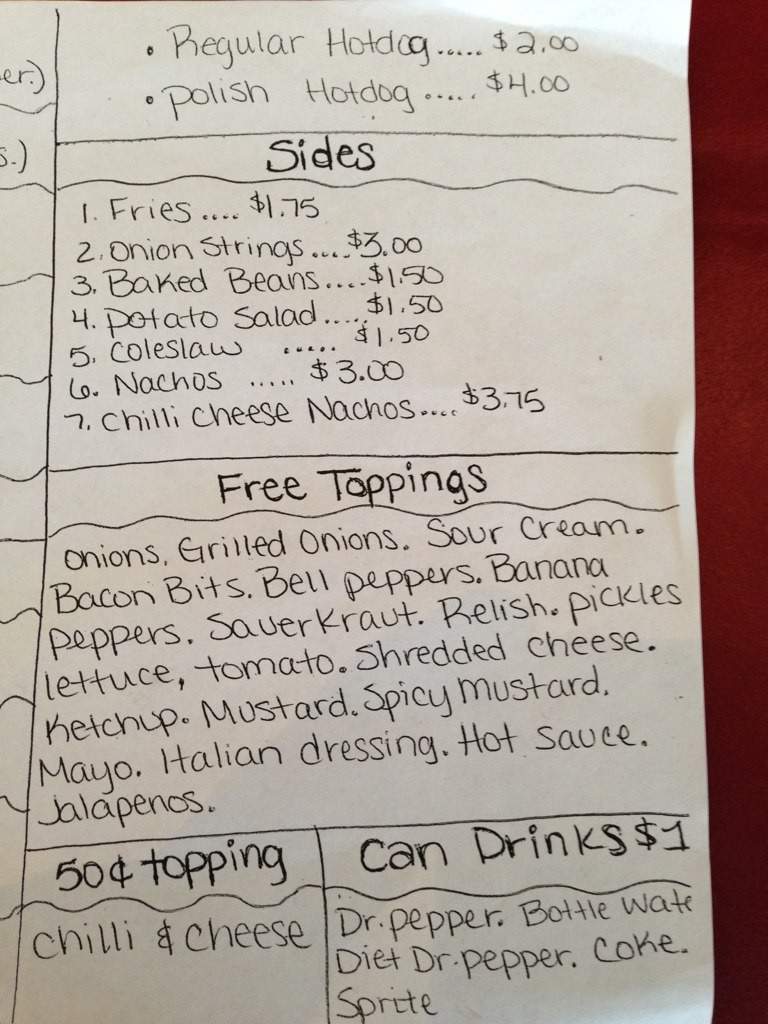 • Regular Hotdog..... $2.00
er.)
• Polish Hotdog ..... $4.00
s.)
Sides
1. Fries .... $1.75
2. Onion Strings .... $3.00
3. Baked Beans.... $1.50
4. Potato Salad.... $1.50
5. Coleslaw ..... $1.50
6. Nachos ..... $3.00
7. Chilli Cheese Nachos.... $3.75
Free Toppings
Onions. Grilled Onions. Sour Cream.
Bacon Bits. Bell peppers. Banana
peppers. Sauerkraut. Relish. pickles
lettuce, tomato. Shredded cheese.
Ketchup. Mustard. Spicy mustard.
Mayo. Italian dressing. Hot sauce.
Jalapenos.
50¢ topping
Chilli & Cheese
Can Drinks $1
Dr. pepper. Bottle Wate
Diet Dr. pepper. Coke.
Sprite